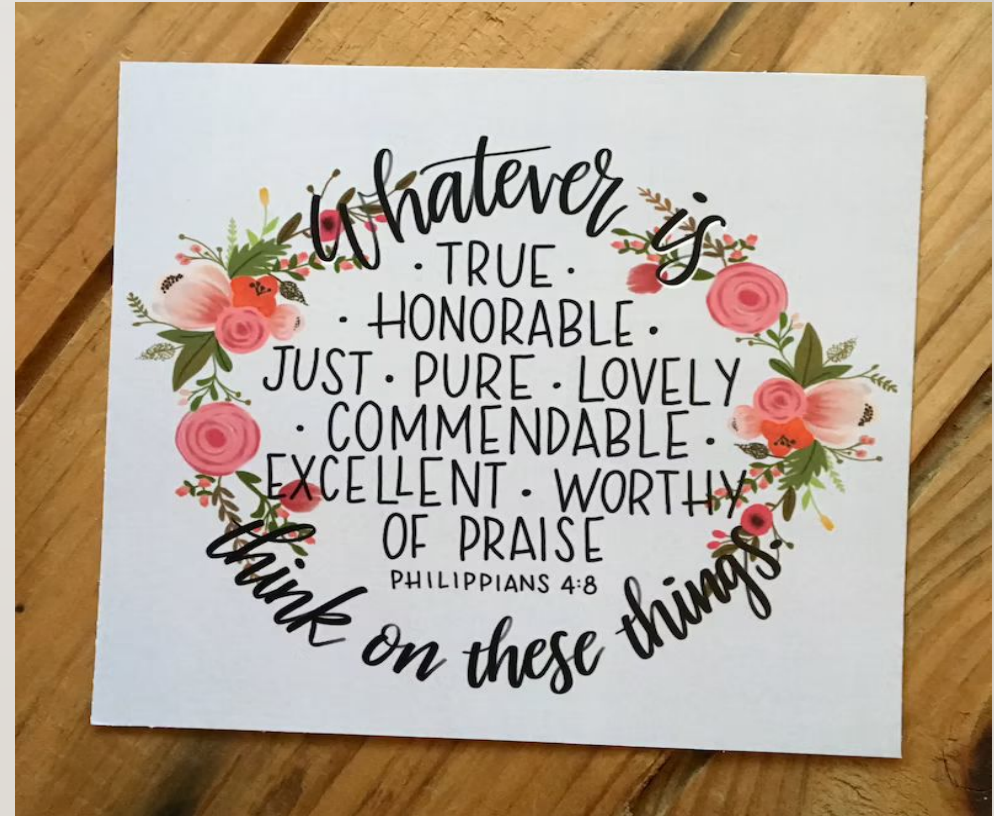 whatever is
· TRUE ·
· HONORABLE ·
JUST · PURE · LOVELY
· COMMENDABLE ·
EXCELLENT · WORTHY
OF PRAISE
PHILIPPIANS 4:8
think on these things.